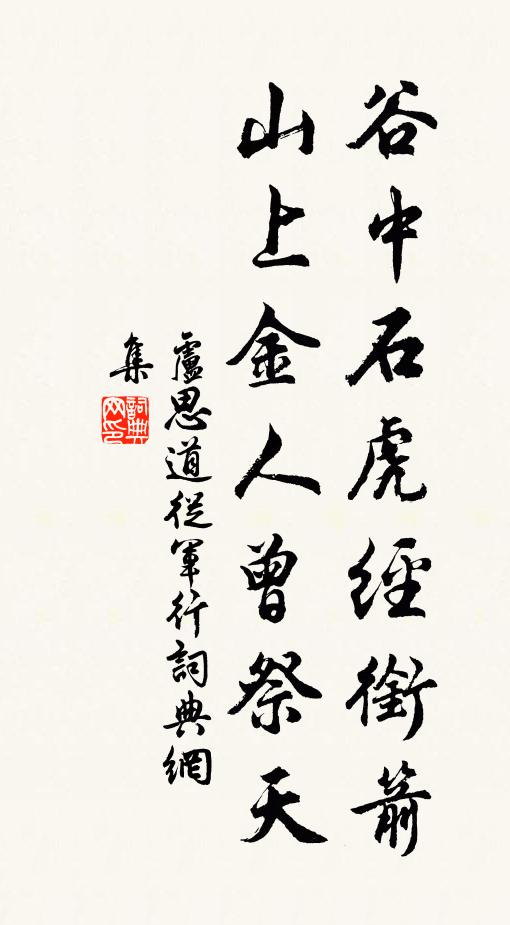 谷中石虎經銜箭
山上金人曾祭天
盧思道從軍行詞典網
集
詞典
网印